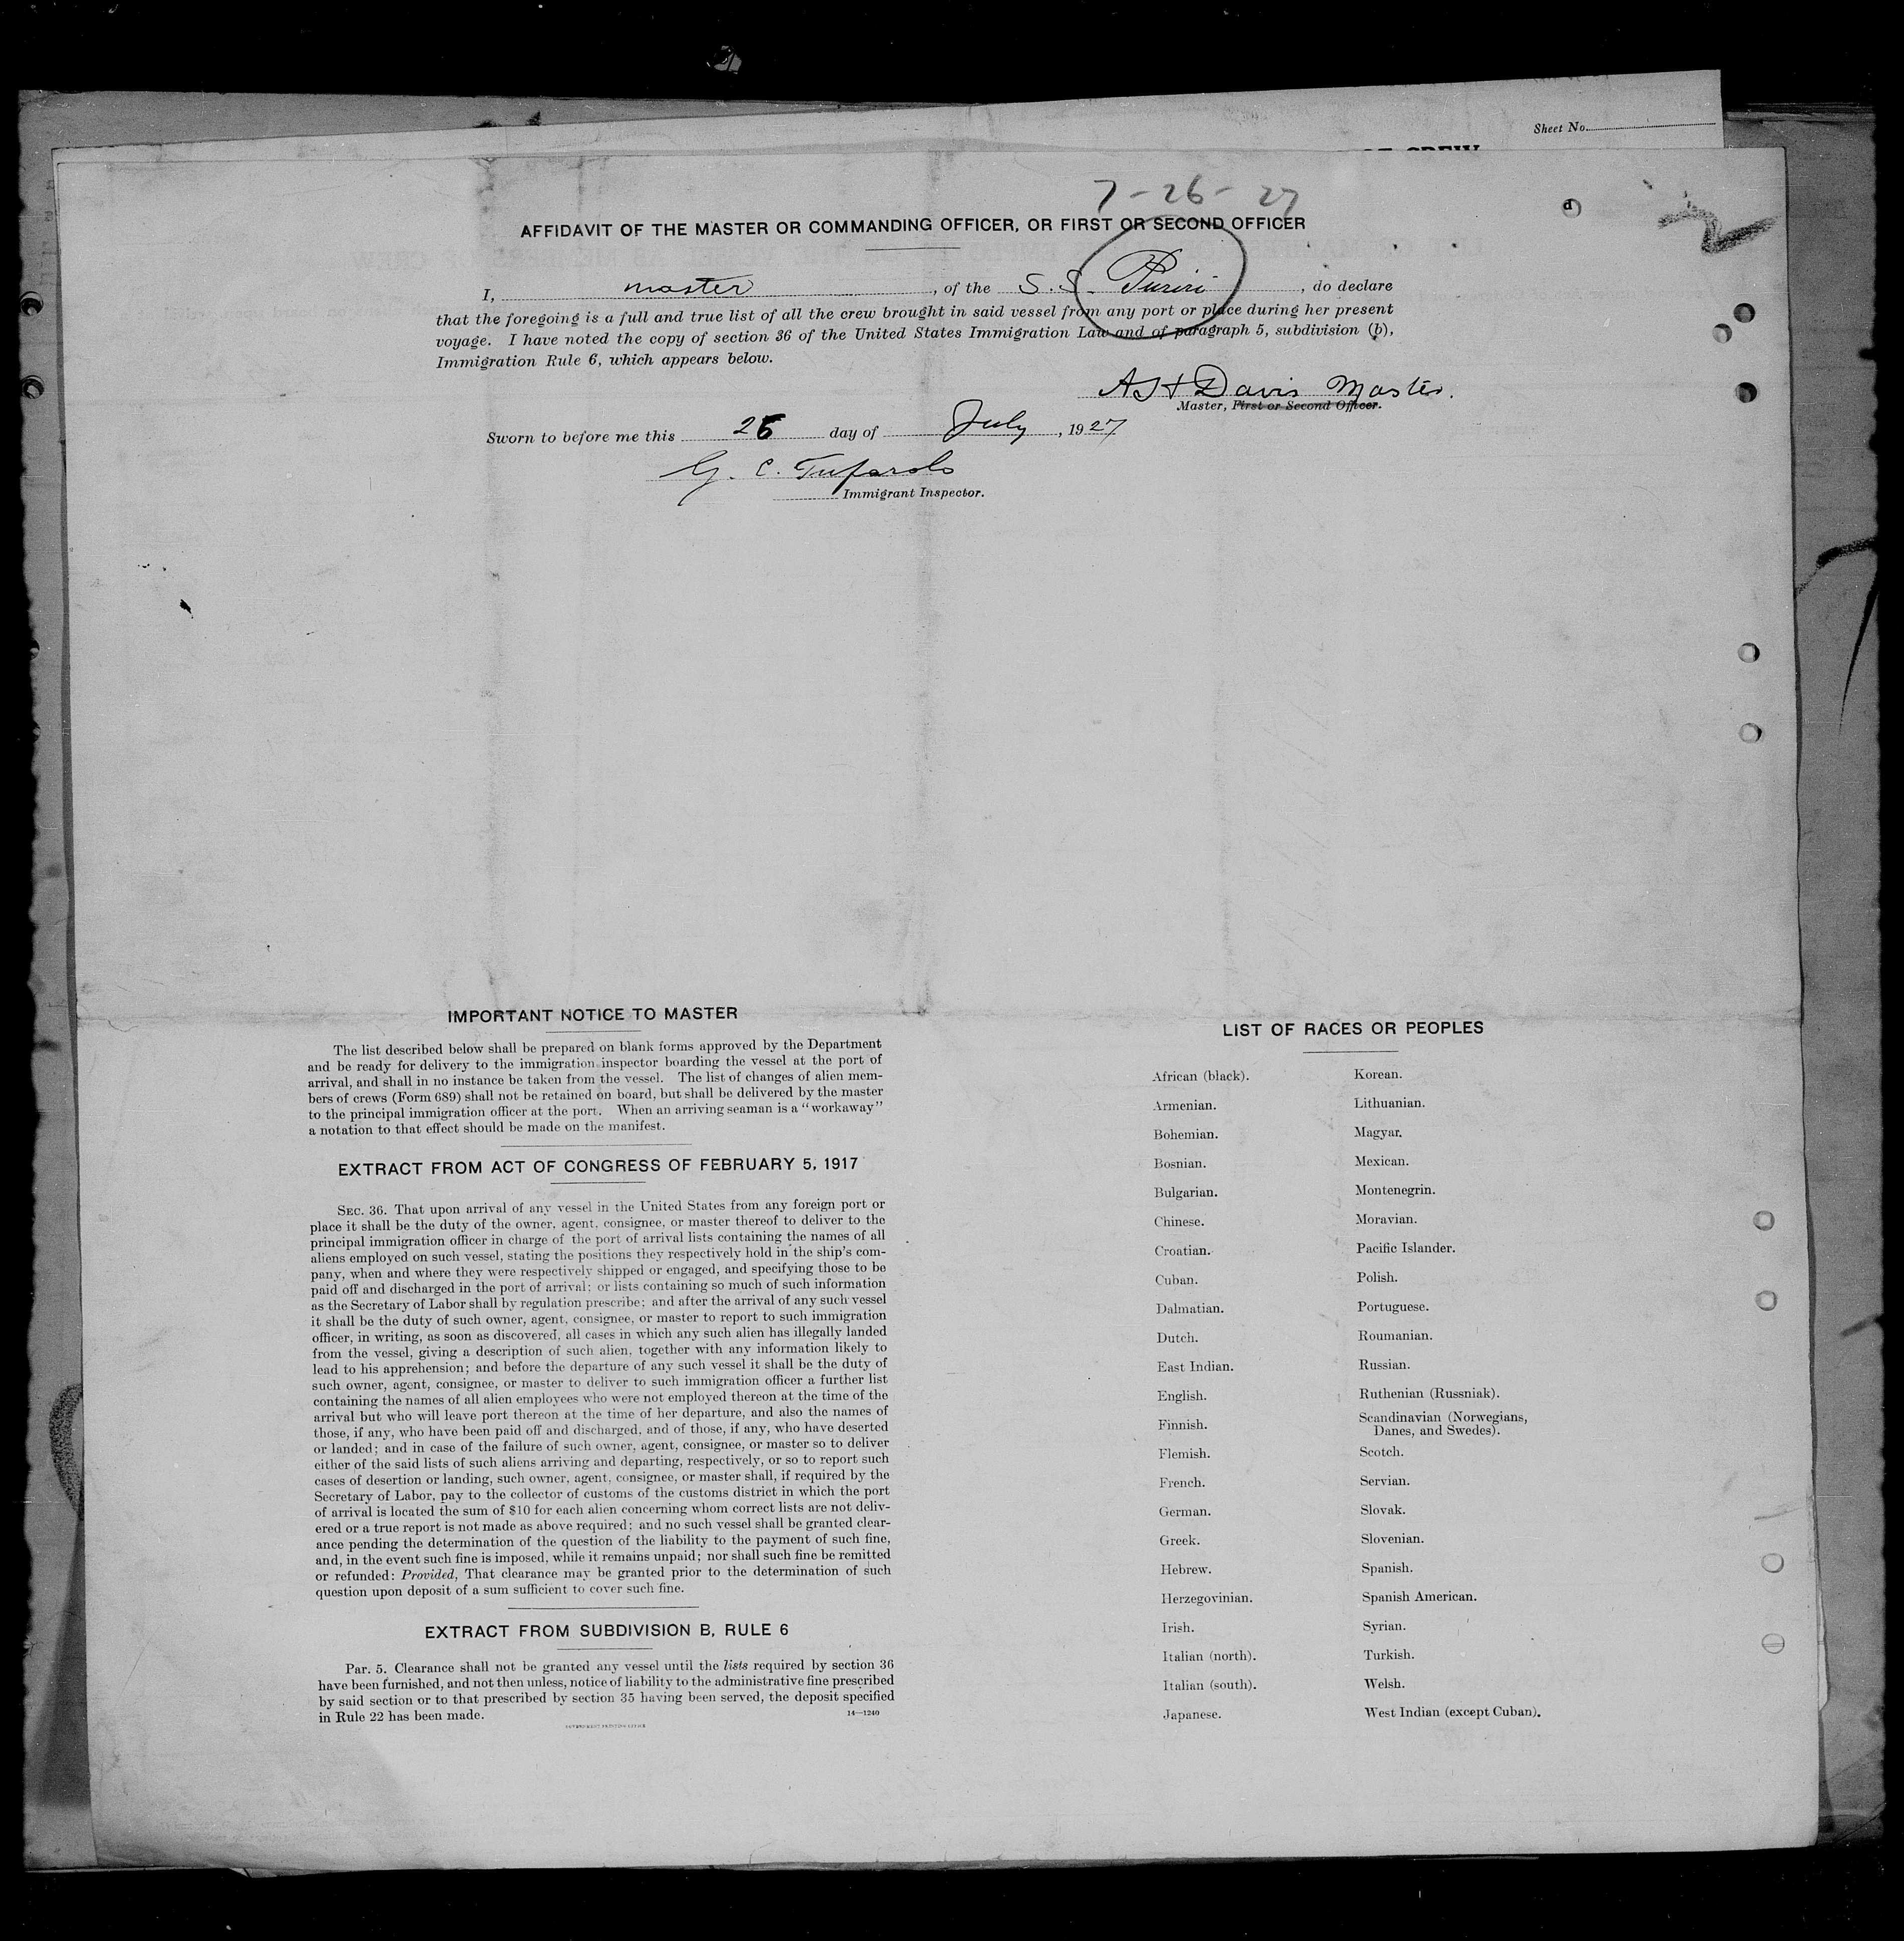 Sheet No.
7-26-27
AFFIDAVIT OF THE MASTER OR COMMANDING OFFICER, OR FIRST OR SECOND OFFICER
I, master, of the S.S. Puriri, do declare
that the foregoing is a full and true list of all the crew brought in said vessel from any port or place during her present
voyage. I have noted the copy of section 36 of the United States Immigration Law and of paragraph 5, subdivision (b),
Immigration Rule 6, which appears below.
Davis Master.
Master, First or Second Officer.
Sworn to before me this 26 day of July, 1927
G. C. Tufarolo
Immigrant Inspector.
IMPORTANT NOTICE TO MASTER
The list described below shall be prepared on blank forms approved by the Department
and be ready for delivery to the immigration inspector boarding the vessel at the port of
arrival, and shall in no instance be taken from the vessel. The list of changes of alien mem-
bers of crews (Form 689) shall not be retained on board, but shall be delivered by the master
to the principal immigration officer at the port. When an arriving seaman is a "workaway"
a notation to that effect should be made on the manifest.
EXTRACT FROM ACT OF CONGRESS OF FEBRUARY 5, 1917
SEC. 36. That upon arrival of any vessel in the United States from any foreign port or
place it shall be the duty of the owner, agent, consignee, or master thereof to deliver to the
principal immigration officer in charge of the port of arrival lists containing the names of all
aliens employed on such vessel, stating the positions they respectively hold in the ship's com-
pany, when and where they were respectively shipped or engaged, and specifying those to be
paid off and discharged in the port of arrival; or lists containing so much of such information
as the Secretary of Labor shall by regulation prescribe; and after the arrival of any such vessel
it shall be the duty of such owner, agent, consignee, or master to report to such immigration
officer, in writing, as soon as discovered, all cases in which any such alien has illegally landed
from the vessel, giving a description of such alien, together with any information likely to
lead to his apprehension; and before the departure of any such vessel it shall be the duty of
such owner, agent, consignee, or master to deliver to such immigration officer a further list
containing the names of all alien employees who were not employed thereon at the time of the
arrival but who will leave port thereon at the time of her departure, and also the names of
those, if any, who have been paid off and discharged, and of those, if any, who have deserted
or landed; and in case of the failure of such owner, agent, consignee, or master so to deliver
either of the said lists of such aliens arriving and departing, respectively, or so to report such
cases of desertion or landing, such owner, agent, consignee, or master shall, if required by the
Secretary of Labor, pay to the collector of customs of the customs district in which the port
of arrival is located the sum of $10 for each alien concerning whom correct lists are not deliv-
ered or a true report is not made as above required; and no such vessel shall be granted clear-
ance pending the determination of the question of the liability to the payment of such fine,
and, in the event such fine is imposed, while it remains unpaid; nor shall such fine be remitted
or refunded: Provided, That clearance may be granted prior to the determination of such
question upon deposit of a sum sufficient to cover such fine.
EXTRACT FROM SUBDIVISION B, RULE 6
Par. 5. Clearance shall not be granted any vessel until the lists required by section 36
have been furnished, and not then unless, notice of liability to the administrative fine prescribed
by said section or to that prescribed by section 35 having been served, the deposit specified
in Rule 22 has been made.
14—1240
GOVERNMENT PRINTING OFFICE
LIST OF RACES OR PEOPLES
African (black).
Armenian.
Bohemian.
Bosnian.
Bulgarian.
Chinese.
Croatian.
Cuban.
Dalmatian.
Dutch.
East Indian.
English.
Finnish.
Flemish.
French.
German.
Greek.
Hebrew.
Herzegovinian.
Irish.
Italian (north).
Italian (south).
Japanese.
Korean.
Lithuanian.
Magyar.
Mexican.
Montenegrin.
Moravian.
Pacific Islander.
Polish.
Portuguese.
Roumanian.
Russian.
Ruthenian (Russniak).
Scandinavian (Norwegians,
Danes, and Swedes).
Scotch.
Servian.
Slovak.
Slovenian.
Spanish.
Spanish American.
Syrian.
Turkish.
Welsh.
West Indian (except Cuban).